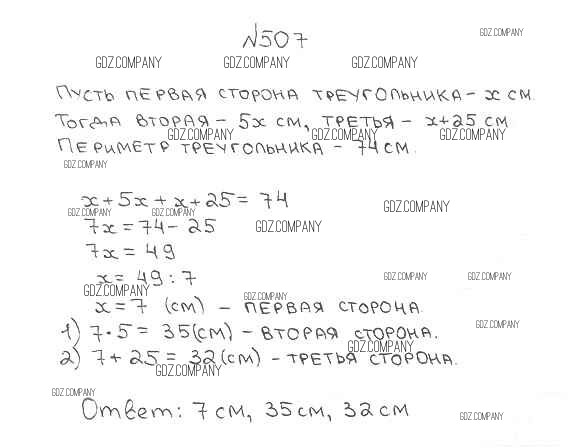 №507
GDZ.COMPANY
GDZ.COMPANY GDZ.COMPANY GDZ.COMPANY
Пусть первая сторона треугольника – x см.
Тогда вторая – 5x см, третья – x+25 см
GDZ.COMPANY GDZ.COMPANY GDZ.COMPANY
Периметр треугольника – 74 см.
GDZ.COMPANY
x + 5x + x + 25 = 74
GDZ.COMPANY GDZ.COMPANY GDZ.COMPANY
7x = 74 – 25 GDZ.COMPANY
7x = 49
x = 49 : 7 GDZ.COMPANY GDZ.COMPANY
GDZ.COMPANY GDZ.COMPANY
x = 7 (см) – первая сторона.
GDZ.COMPANY
1) 7 · 5 = 35 (см) – вторая сторона.
GDZ.COMPANY
2) 7 + 25 = 32 (см) – третья сторона.
GDZ.COMPANY
GDZ.COMPANY
Ответ: 7 см, 35 см, 32 см
GDZ.COMPANY